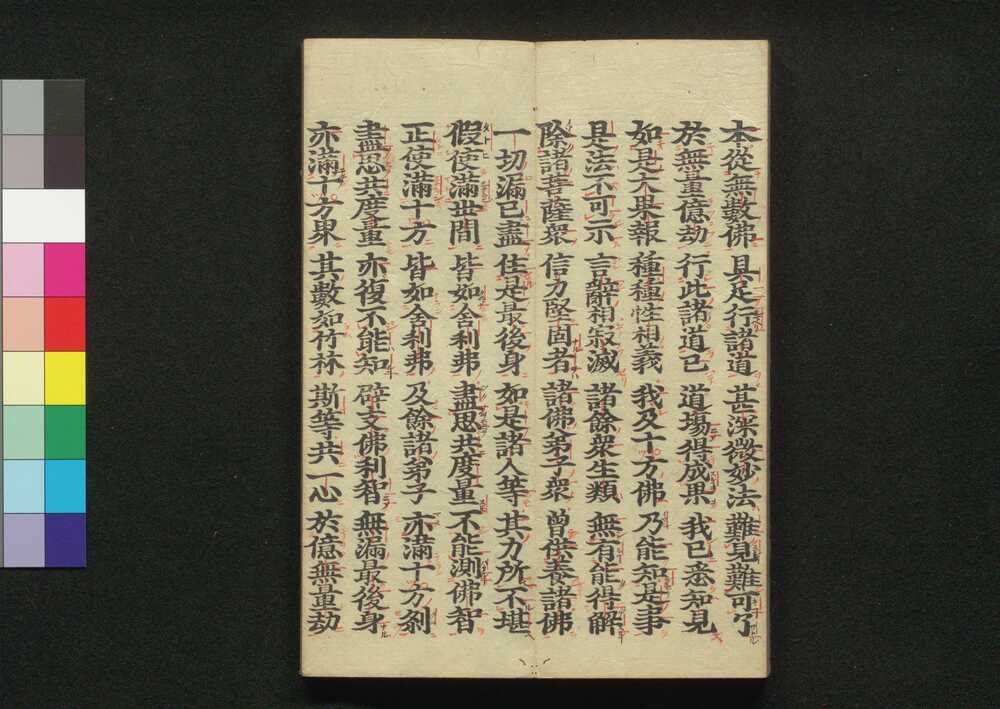 本從無數佛 具足行諸道 甚深微妙法 難見難可了
於無量億劫 行此諸道已 道場得成果 我已悉知見
如是大果報 種種性相義 我及十方佛 乃能知是事
是法不可示 言辭相寂滅 諸餘衆生類 無有能得解
除諸菩薩衆 信力堅固者 諸佛弟子衆 曾供養諸佛
一切漏已盡 住是最後身 如是諸人等 其力所不堪
假使滿世間 皆如舍利弗 盡思共度量 不能測佛智
正使滿十方 皆如舍利弗 及餘諸弟子 亦滿十方刹
盡思共度量 亦復不能知 辟支佛利智 無漏最後身
亦滿十方界 其數如竹林 斯等共一心 於億無量劫